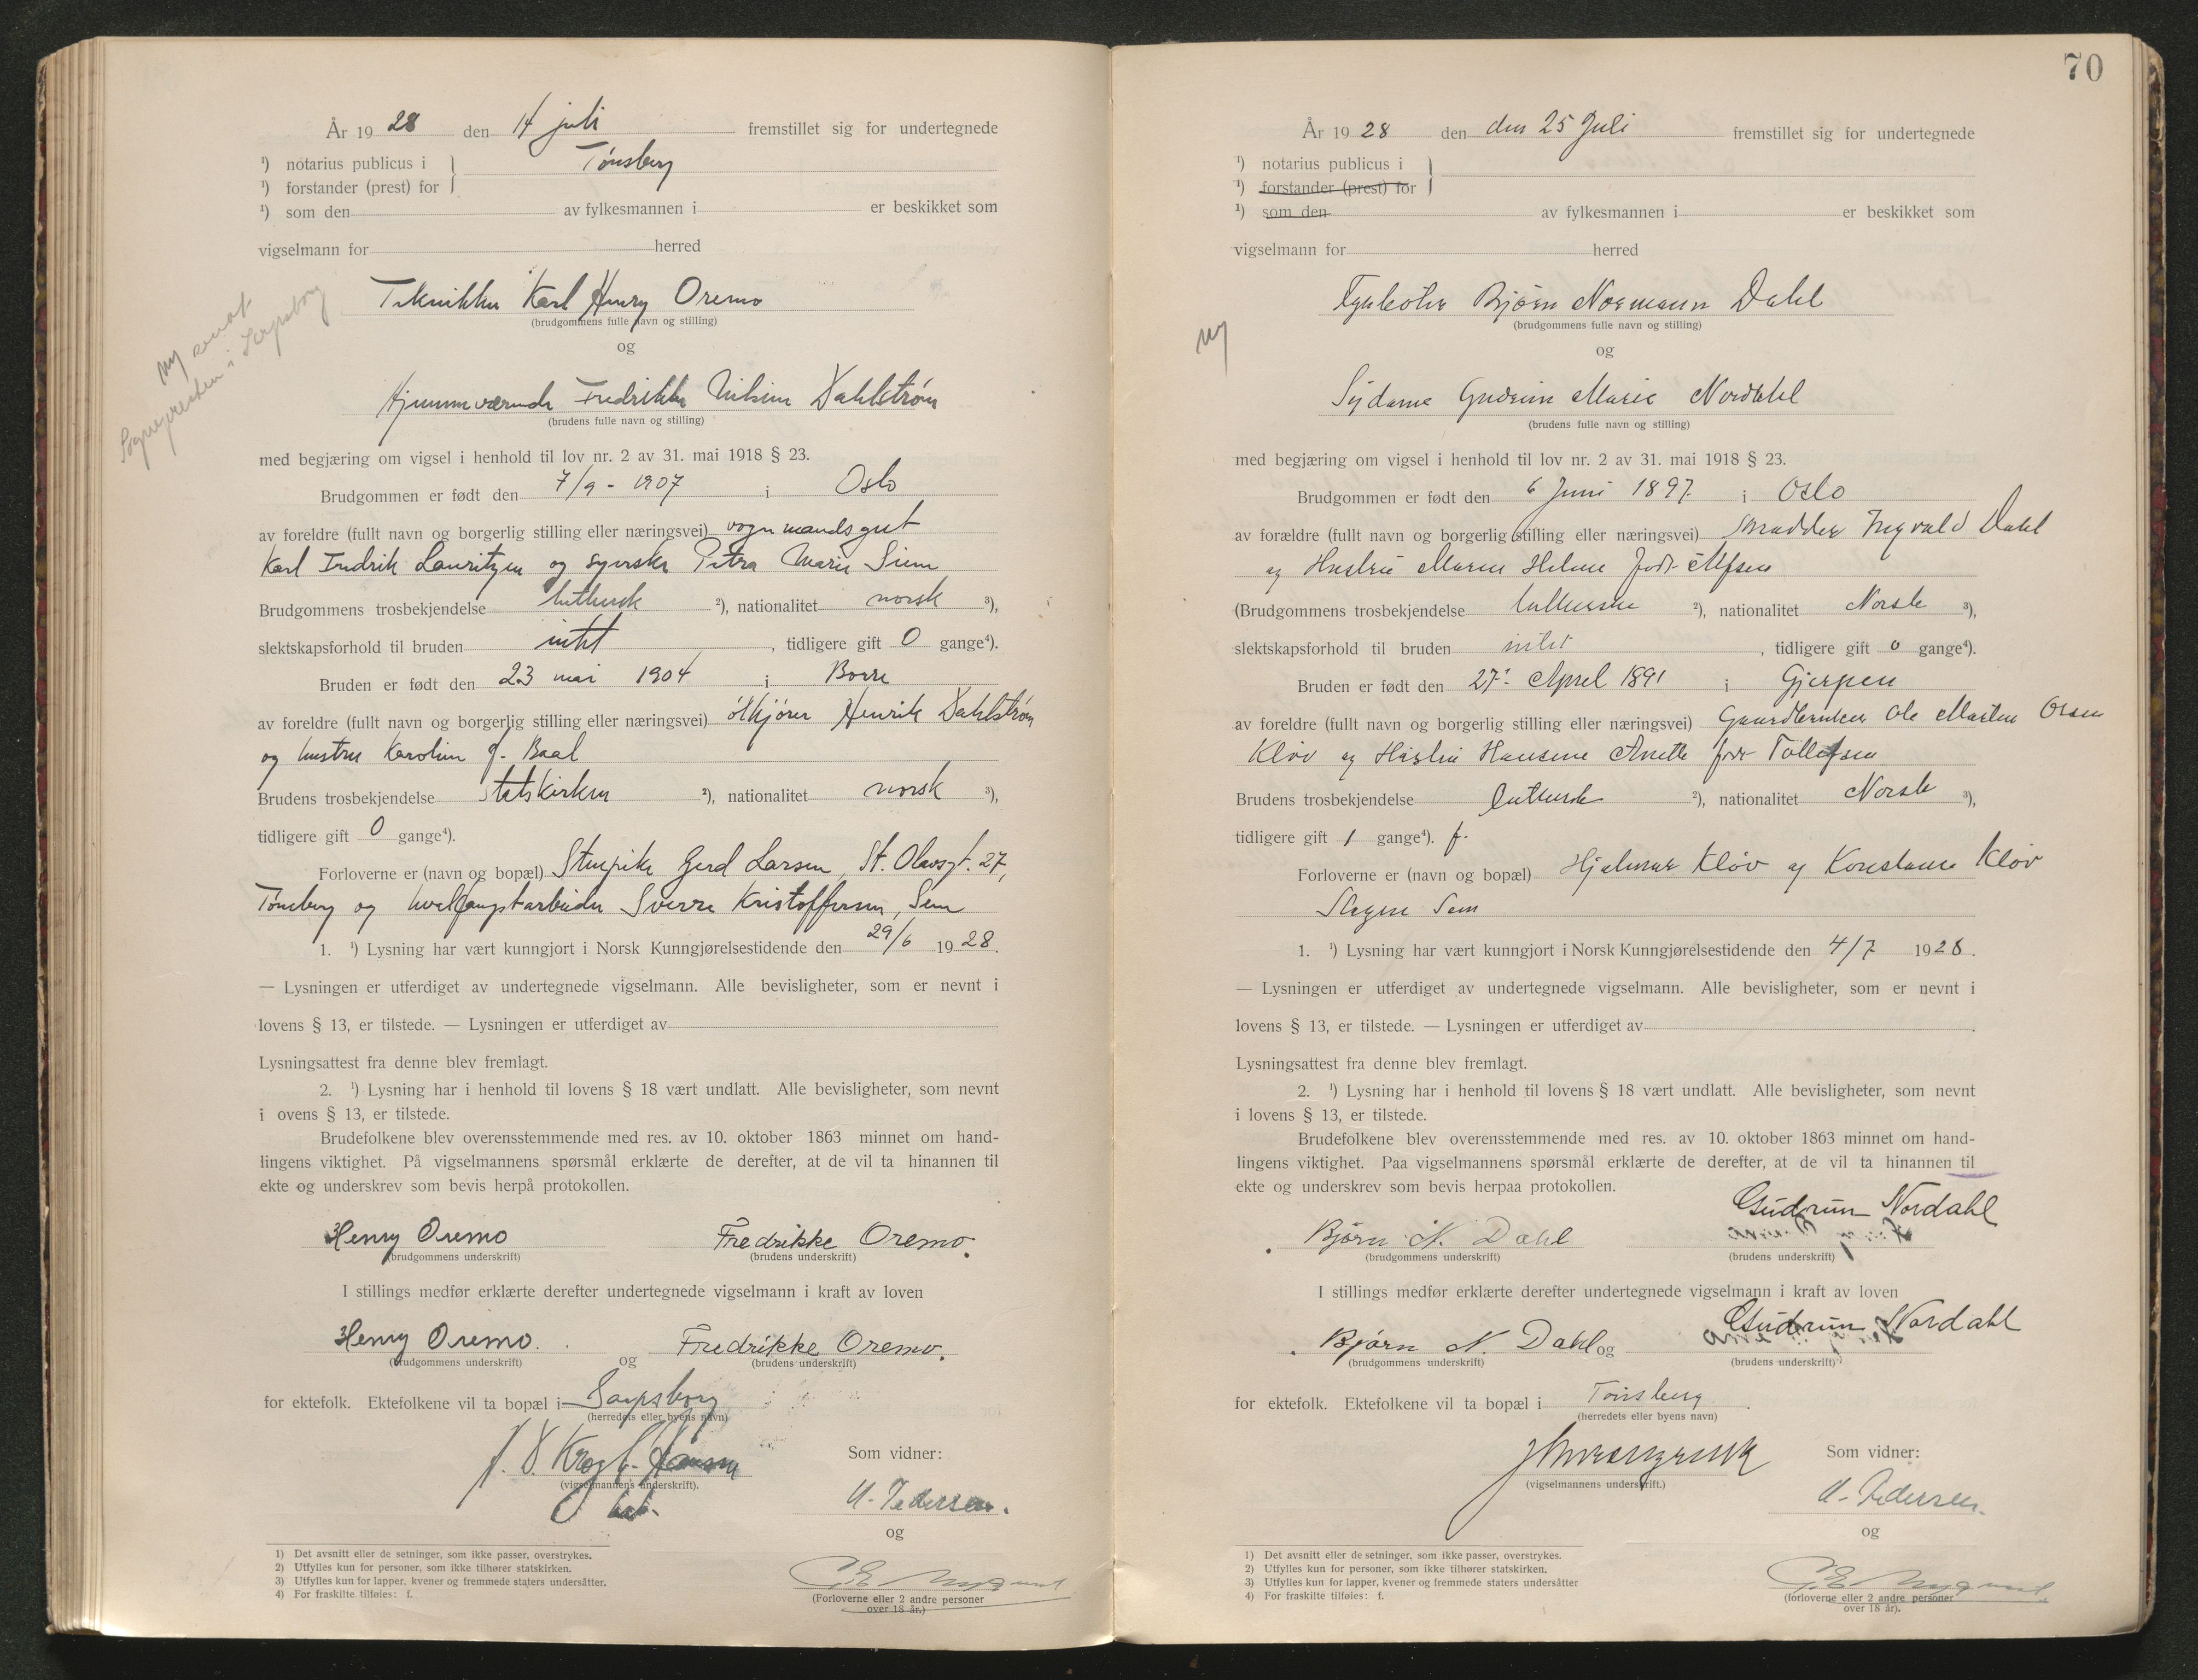 År 1928 den 14 juli fremstillet sig for undertegnede
¹) notarius publicus i } Tønsberg
¹) forstander (prest) for
¹) som den av fylkesmannen i er beskikket som
vigselmann for herred
Tekniker Karl Henry Oremo
(brudgommens fulle navn og stilling)
og
Ny sendt
Sognepresten i Sarpsborg
Hjemmeværende Fredrikke Nilsine Dahlstrøm
(brudens fulle navn og stilling)
med begjæring om vigsel i henhold til lov nr. 2 av 31. mai 1918 § 23.
Brudgommen er født den 7/9 - 1907 i Oslo
av foreldre (fullt navn og borgerlig stilling eller næringsvei) vognmandsgut
Karl Fredrik Lauritzen og syerske Petra Marie Siem
Brudgommens trosbekjendelse luthersk ²), nationalitet norsk ³),
slektskapsforhold til bruden intet , tidligere gift 0 gange⁴).
Bruden er født den 23 mai 1904 i Borre
av foreldre (fullt navn og borgerlig stilling eller næringsvei) ølkjører Henrik Dahlstrøm
og hustru Karoline f. Baal
Brudens trosbekjendelse statskirken ²), nationalitet norsk ³),
tidligere gift 0 gange⁴).
Forloverne er (navn og bopæl) Stuepike Gerd Larsen, St. Olavsgt. 27,
Tønsberg og hvalfangstarbeider Sverre Kristoffersen, Sem
1. ¹) Lysning har vært kunngjort i Norsk Kunngjørelsestidende den 29/6 1928.
— Lysningen er utferdiget av undertegnede vigselmann. Alle bevisligheter, som er nevnt i
lovens § 13, er tilstede. — Lysningen er utferdiget av
Lysningsattest fra denne blev fremlagt.
2. ¹) Lysning har i henhold til lovens § 18 vært undlatt. Alle bevisligheter, som nevnt
i ovens § 13, er tilstede.
Brudefolkene blev overensstemmende med res. av 10. oktober 1863 minnet om hand-
lingens viktighet. På vigselmannens spørsmål erklærte de derefter, at de vil ta hinannen til
ekte og underskrev som bevis herpå protokollen.
Henry Oremo Fredrikke Oremo.
(brudgommens underskrift) (brudens underskrift)
I stillings medfør erklærte derefter undertegnede vigselmann i kraft av loven
Henry Oremo. og Fredrikke Oremo.
(brudgommens underskrift) (brudens underskrift)
for ektefolk. Ektefolkene vil ta bopæl i Sarpsborg
(herredets eller byens navn)
Krogh-Hansen
(vigselmannens underskrift).
Som vidner:
U. Pedersen.
og
(Forloverne eller 2 andre personer
over 18 år.)
1) Det avsnitt eller de setninger, som ikke passer, overstrykes.
2) Utfylles kun for personer, som ikke tilhører statskirken.
3) Utfylles kun for lapper, kvener og fremmede staters undersåtter.
4) For fraskilte tilføies: f.
70
År 1928 den den 25 Juli fremstillet sig for undertegnede
¹) notarius publicus i }
¹) forstander (prest) for
¹) som den av fylkesmannen i er beskikket som
vigselmann for herred
Bjørn Normann Dahl
(brudgommens fulle navn og stilling)
ny
og
Sydame Gudrun Marie Nordahl
(brudens fulle navn og stilling)
med begjæring om vigsel i henhold til lov nr. 2 av 31. mai 1918 § 23.
Brudgommen er født den 6 Juni 1897 i Oslo
av forældre (fullt navn og borgerlig stilling eller næringsvei) Skrædder Ingvald Dahl
og Hustru Maren Helene født Alfsen
(Brudgommens trosbekjendelse lutherske ²), nationalitet Norsk ³),
slektskapsforhold til bruden intet , tidligere gift 0 gange⁴).
Bruden er født den 27: April 1891 i Gjerpen
av foreldre (fullt navn og borgerlig stilling eller næringsvei) Gaardbruker Ole Martin Olsen
Kløv og Hustru Hansine Anette født Tollefsen
Brudens trosbekjendelse luthersk ²), nationalitet Norsk ³),
tidligere gift 1 gange⁴). f.
Forloverne er (navn og bopæl) Hjalmar Kløv og Konstanse Kløv
Slagen Sem
1. ¹) Lysning har vært kunngjort i Norsk Kunngjørelsestidende den 4/7 1928.
— Lysningen er utferdiget av undertegnede vigselmann. Alle bevisligheter, som er nevnt i
lovens § 13, er tilstede. — Lysningen er utferdiget av .
Lysningsattest fra denne blev fremlagt.
2. ¹) Lysning har i henhold til lovens § 18 vært undlatt. Alle bevisligheter, som nevnt
i lovens § 13, er tilstede.
Brudefolkene blev overensstemmende med res. av 10. oktober 1863 minnet om hand-
lingens viktighet. Paa vigselmannens spørsmål erklærte de derefter, at de vil ta hinannen til
ekte og underskrev som bevis herpaa protokollen.
Bjørn N. Dahl Gudrun Nordahl
(brudgommens underskrift) (brudens underskrift)
I stillings medfør erklærte derefter undertegnede vigselmann i kraft av loven
Bjørn N. Dahl og Gudrun Nordahl
(brudgommens underskrift) (brudens underskrift)
for ektefolk. Ektefolkene vil ta bopæl i Tønsberg.
(herredets eller byens navn)
(vigselmannens underskrift.)
Som vidner:
U. Pedersen.
og
(forloverne eller 2 andre personer
over 18 år).
1) Det avsnitt eller de setninger, som ikke passer, overstrykes.
2) Utfylles kun for personer, som ikke tilhører statskirken.
3) Utfylles kun for lapper, kvener og fremmede staters undersåtter
4) For fraskilte tilføies: f.